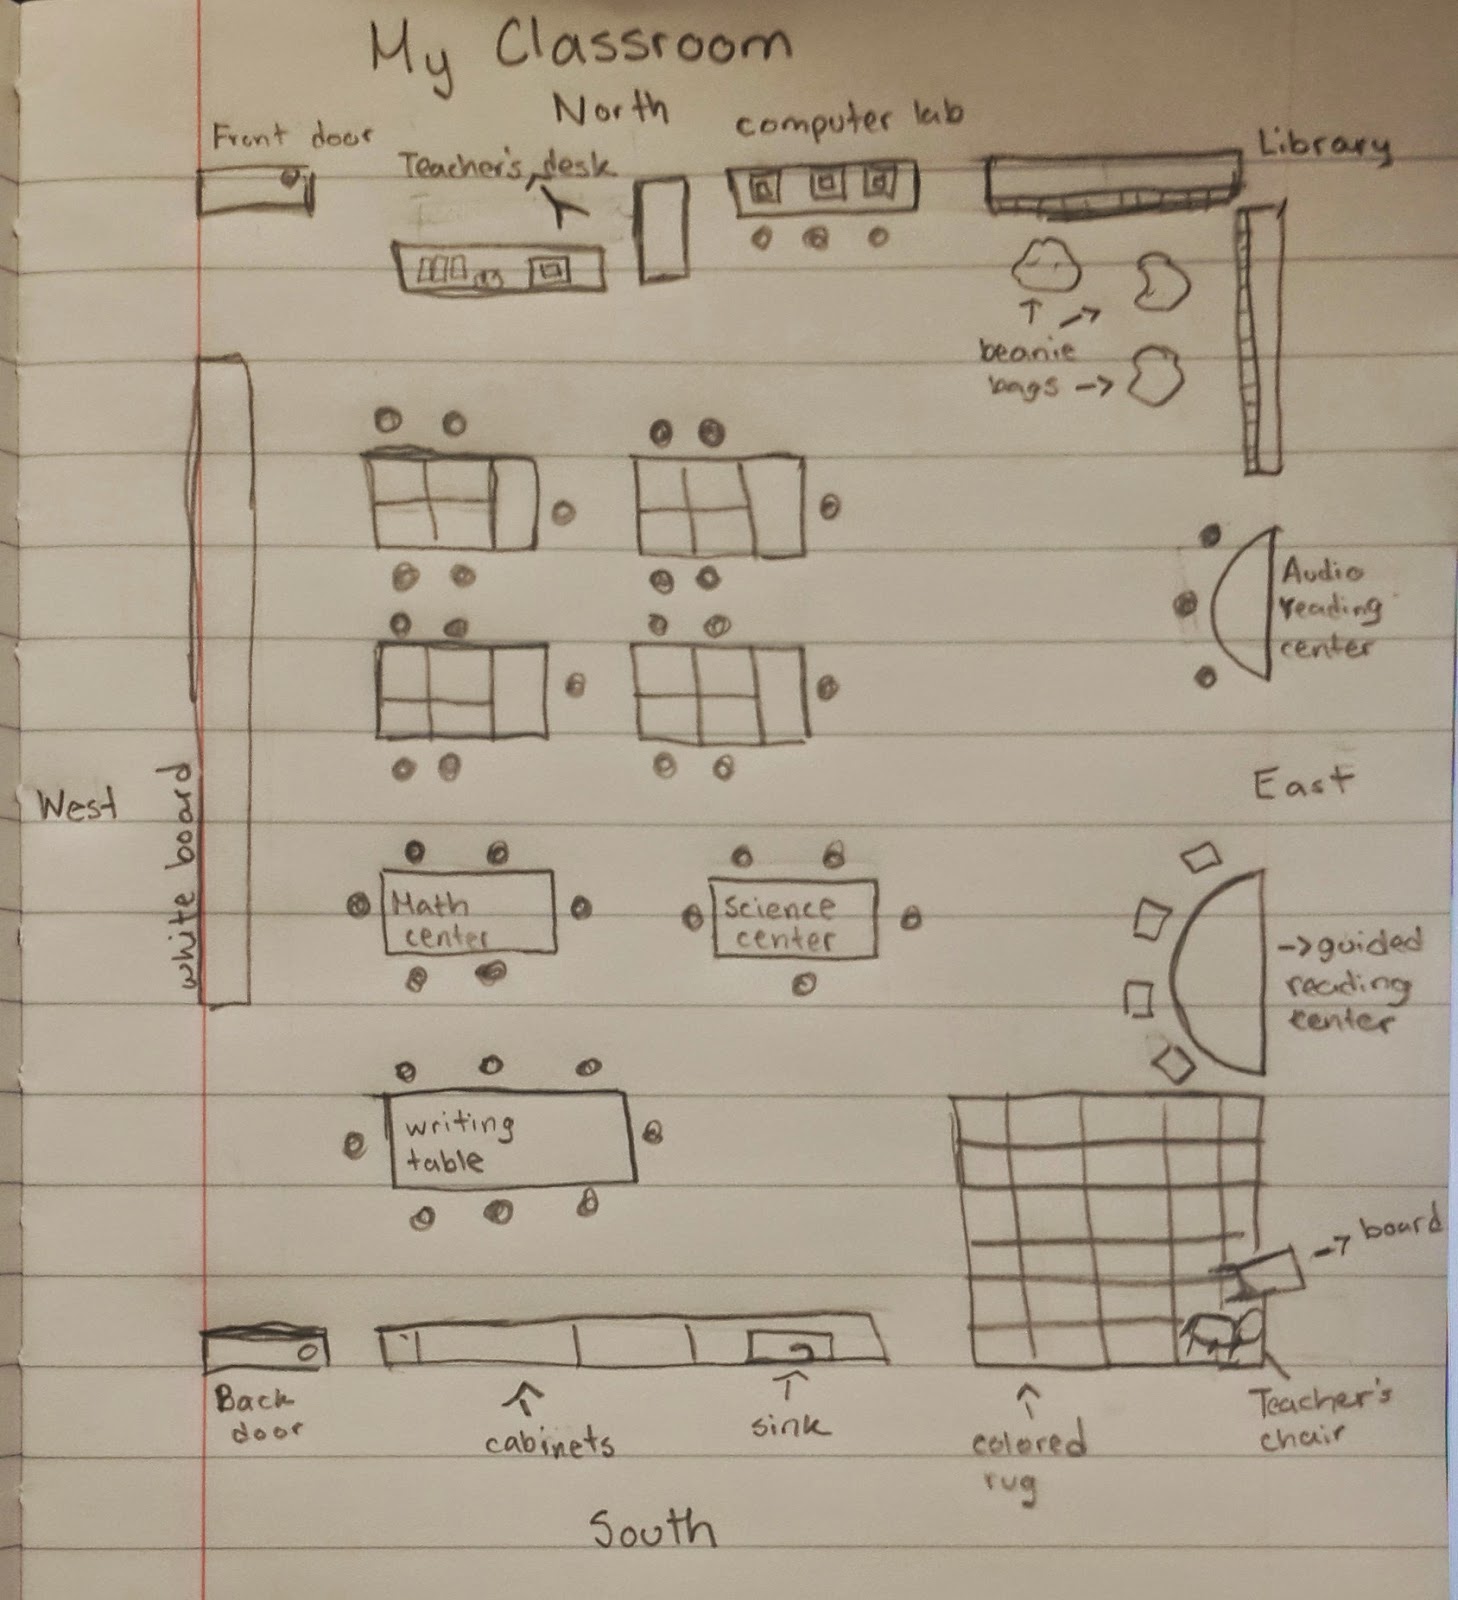 My Classroom
North
Front door
Teacher's desk
computer lab
Library
beanie
bags
Audio
reading
center
West
white board
East
Math
center
Science
center
guided
reading
center
writing
table
board
Back
door
cabinets
sink
colored
rug
Teacher's
chair
South